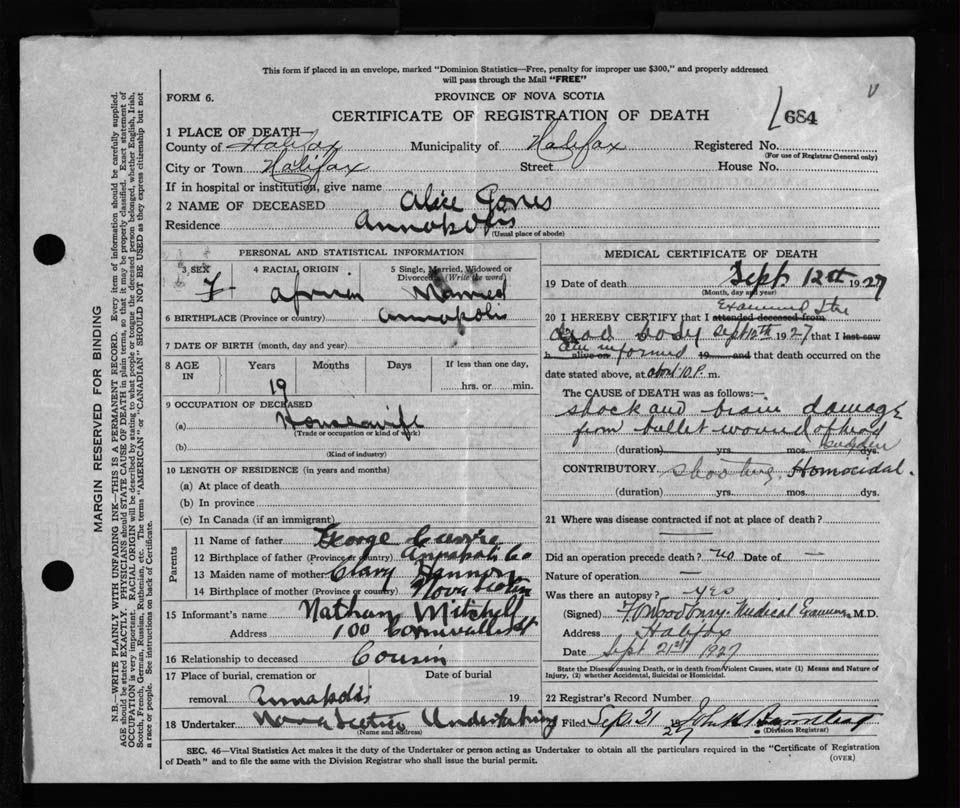 This form if placed in an envelope, marked "Dominion Statistics—Free, penalty for improper use $300," and properly addressed
will pass through the Mail "FREE"
FORM 6.
PROVINCE OF NOVA SCOTIA
CERTIFICATE OF REGISTRATION OF DEATH
684
1 PLACE OF DEATH—
County of Halifax Municipality of Halifax Registered No.
(For use of Registrar General only)
City or Town Halifax Street House No.
If in hospital or institution, give name
2 NAME OF DECEASED Alice Jones
Residence Annapolis
(Usual place of abode)
PERSONAL AND STATISTICAL INFORMATION
3 SEX 4 RACIAL ORIGIN 5 Single, Married, Widowed or
Divorced (Write the word)
F African Married
6 BIRTHPLACE (Province or country) Annapolis
7 DATE OF BIRTH (month, day and year)
8 AGE IN Years Months Days If less than one day,
19 hrs. or min.
9 OCCUPATION OF DECEASED
(a) Housewife
(Trade or occupation or kind of work)
(b)
(Kind of industry)
10 LENGTH OF RESIDENCE (in years and months)
(a) At place of death
(b) In province
(c) In Canada (if an immigrant)
Parents
11 Name of father George
12 Birthplace of father (Province or country) Annapolis Co
13 Maiden name of mother
14 Birthplace of mother (Province or country) Nova Scotia
15 Informant's name Nathan Mitchell
Address 100 Cornwallis St
16 Relationship to deceased Cousin
17 Place of burial, cremation or Date of burial
removal Annapolis 19
18 Undertaker Nova Scotia Undertaking
(Name and address)
MEDICAL CERTIFICATE OF DEATH
19 Date of death Sept 12th 1927
(Month, day and year)
20 I HEREBY CERTIFY that I attended deceased from Examined the
dead body Sept 12th 1927 that I last saw
h alive on am informed 19 and that death occurred on the
date stated above, at about 10 P. m.
The CAUSE of DEATH was as follows:—
shock and brain damage
from bullet wound of head
(duration) yrs. mos. dys.
CONTRIBUTORY shooting. Homocidal.
(duration) yrs. mos. dys.
21 Where was disease contracted if not at place of death?
Did an operation precede death? no Date of —
Nature of operation —
Was there an autopsy? yes
(Signed) Medical Examiner M.D.
Address Halifax
Date Sept 21st 1927
State the Disease causing Death, or in death from Violent Causes, state (1) Means and Nature of
Injury, (2) whether Accidental, Suicidal or Homicidal.
22 Registrar's Record Number
Filed Sept. 21 27 John H.
(Division Registrar)
SEC. 46—Vital Statistics Act makes it the duty of the Undertaker or person acting as Undertaker to obtain all the particulars required in the "Certificate of Registration
of Death" and to file the same with the Division Registrar who shall issue the burial permit.
(OVER)
MARGIN RESERVED FOR BINDING
N.B.—WRITE PLAINLY WITH UNFADING INK—THIS IS A PERMANENT RECORD. Every item of information should be carefully supplied.
AGE should be stated EXACTLY. PHYSICIANS should STATE CAUSE OF DEATH in plain terms, so that it may be properly classified. Exact statement of
OCCUPATION is very important. RACIAL ORIGIN will be described by stating to what people or tongue the deceased person belonged, whether English, Irish,
Scotch, French, German, Russian, Ruthenian, etc. The terms "AMERICAN" or "CANADIAN" SHOULD NOT BE USED as they express citizenship but not
a race or people. See instructions on back of Certificate.